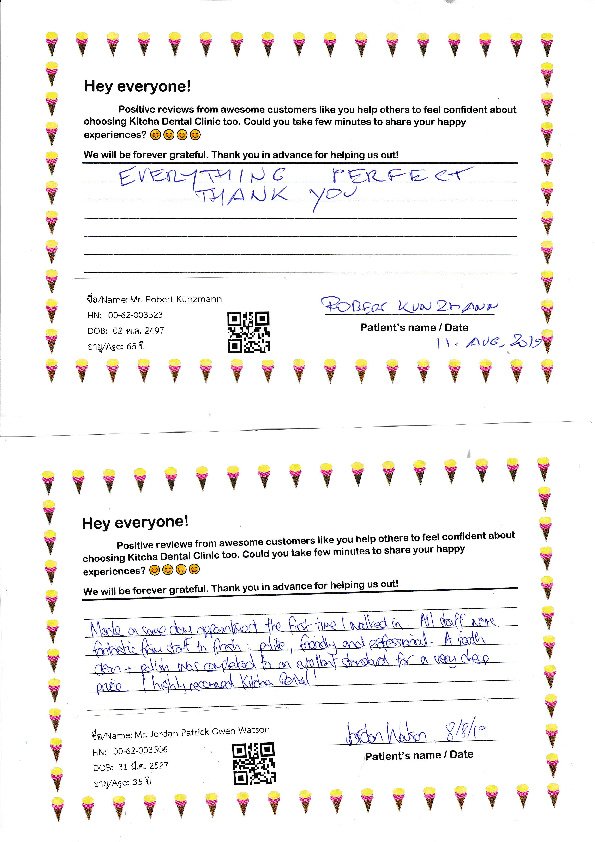 Hey everyone!
Positive reviews from awesome customers like you help others to feel confident about
choosing Kitcha Dental Clinic too. Could you take few minutes to share your happy
experiences? 😊😊😊😊
We will be forever grateful. Thank you in advance for helping us out!
EVERYTHING PERFECT
THANK YOU
ชื่อ/Name: Mr. Robert Kunzmann
HN: 00-62-003523
DOB: 02 พ.ค. 2497
อายุ/Age: 65 ปี
ROBERT KUNZMANN
Patient's name / Date
11. AUG. 2019
Hey everyone!
Positive reviews from awesome customers like you help others to feel confident about
choosing Kitcha Dental Clinic too. Could you take few minutes to share your happy
experiences? 😊😊😊😊
We will be forever grateful. Thank you in advance for helping us out!
Made a same day appointment the first time I walked in. All staff were
fantastic from start to finish: polite, friendly and professional. A tooth
clean + polish was completed to an excellent standard for a very cheap
price. I highly recommend Kitcha Dental!
ชื่อ/Name: Mr. Jordan Patrick Owen Watson
HN: 00-62-003506
DOB: 31 มี.ค. 2527
อายุ/Age: 35 ปี
Jordan Watson 8/8/19
Patient's name / Date